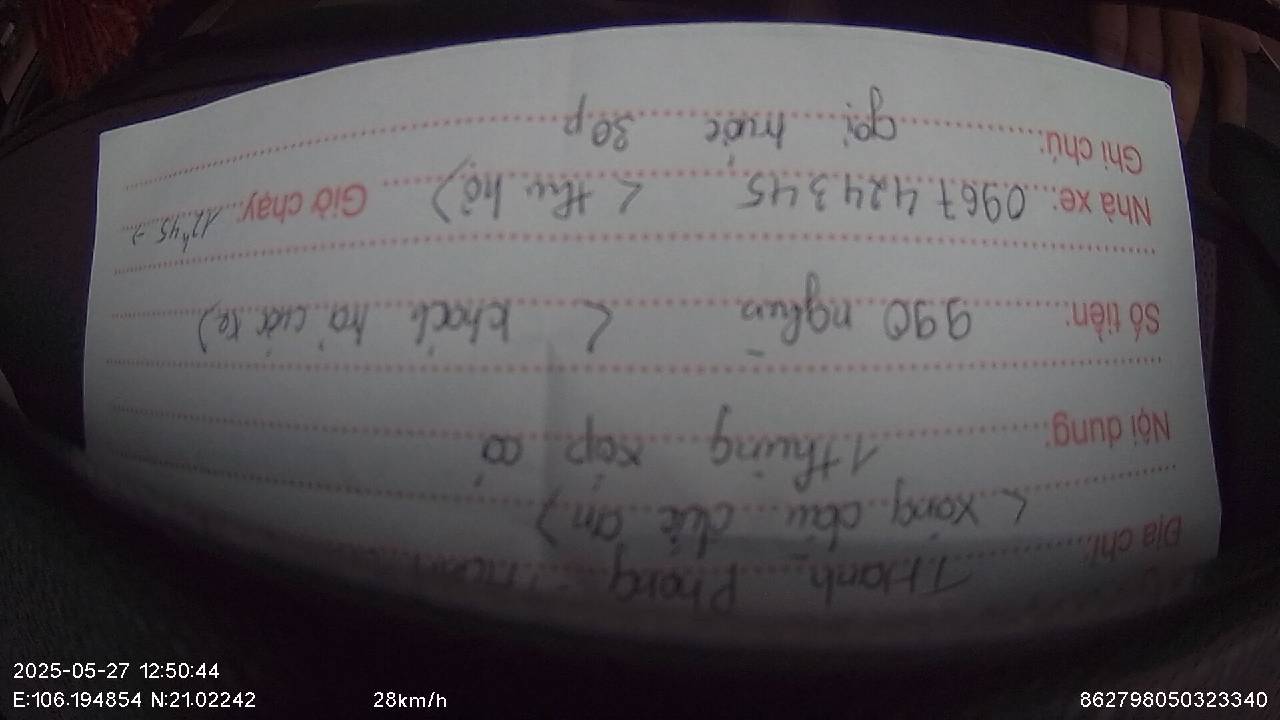 Địa chỉ: Thanh Phong
( xăng dầu đức an )
Nội dung: 1 thùng xốp
Số tiền: 990 nghìn ( khách trả cước xe )
Nhà xe: 0967 424 345 ( thu hộ ) Giờ chạy: 12h45
Ghi chú: gọi trước 30p
2025-05-27 12:50:44
E:106.194854 N:21.02242 28km/h 862798050323340